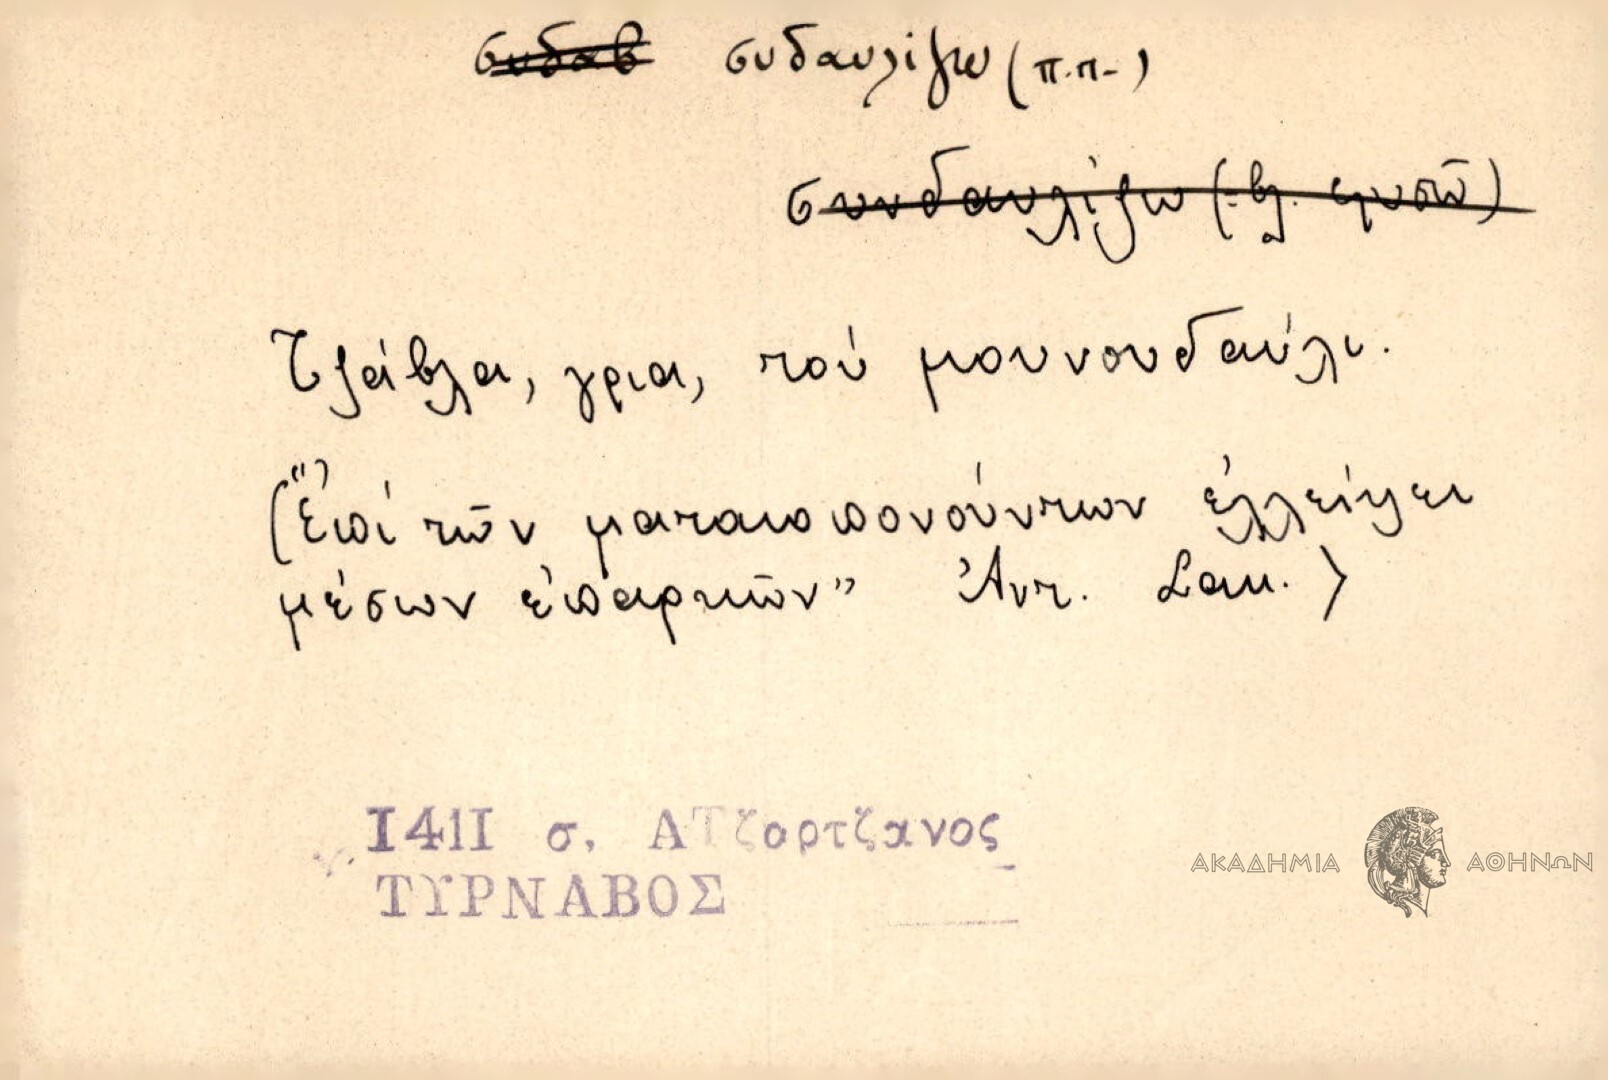 συδαβ συδαυλίζω (π.π.)
συνδαυλίζω (-βλ.
Τζάβλα, γρια, τού μουνουδαύλι.
("Ἐπί τῶν ματαιοπονούντων ἐλλείψει
μέσων ἐπαρκῶν" Ἀντ. Σακ.)
1411 σ. ΑΤζαρτζανος
ΤΥΡΝΑΒΟΣ
ΑΚΑΔΗΜΙΑ ΑΘΗΝΩΝ